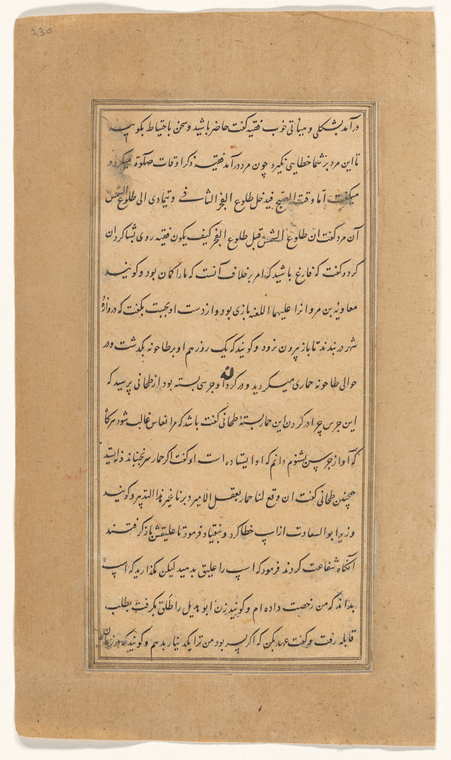 230
درآمد بشکلی و هیأتی خوب فقیه گفت حاضر باشید و سخن باحتیاط بگویید
تا این مرد بر شما خطایی نگیرد چون مرد درآمد فقیه ذکر اوقات صلوة میکرد و
میگفت اما وقت الصبح فیدخل طلوع الفجر الثانی و یتمادی الی طلوع الشمس
آن مرد گفت ان طلوع الشمس قبل طلوع الفجر کیف یکون فقیه روی بشاکردان
کرد و گفت که فارغ باشید که امر بر خلاف آنست که ما را گمان بود و گویند
معاویة بن مروان را علیهما اللعنه بازی بود و از دست او بجست بگفت که دروازه
شهر در بندند تا باز بیرون نرود و گویند که یک روز هم او بر طاحونه بگذشت و در
حوالی طاحونه حماری میگردید و در گردن او جرسی بسته بود از طحانی پرسید که
این جرس چرا در گردن این حمار بستهٔ طحان گفت باشد که مرا نعاس غالب شود هرگاه
که آواز جرس نشنوم دانم که او ایستاده است او گفت اگر حمار سر بجنباند و بایستد
همچنین طحانی گفت ان وقع لنا حمار بعقل الامیر دبرنا غیر هذا التدبیر و گویند
وزیر ابو السعادت از اسب خطا کرد و بتقیاد فرمود تا علیقش باز گرفتند
آنگاه شفاعت کردند فرمود که اسب را علیق بدهید لیکن مگذارید که اسب
بداند که من رخصت داده ام و گویند زن ابو هذیل را طلق بگرفت بطلب
قابله رفت و گفت عهد بکن که اگر پسر بود من ترا یک دینار بدهم و گویند که در زمان